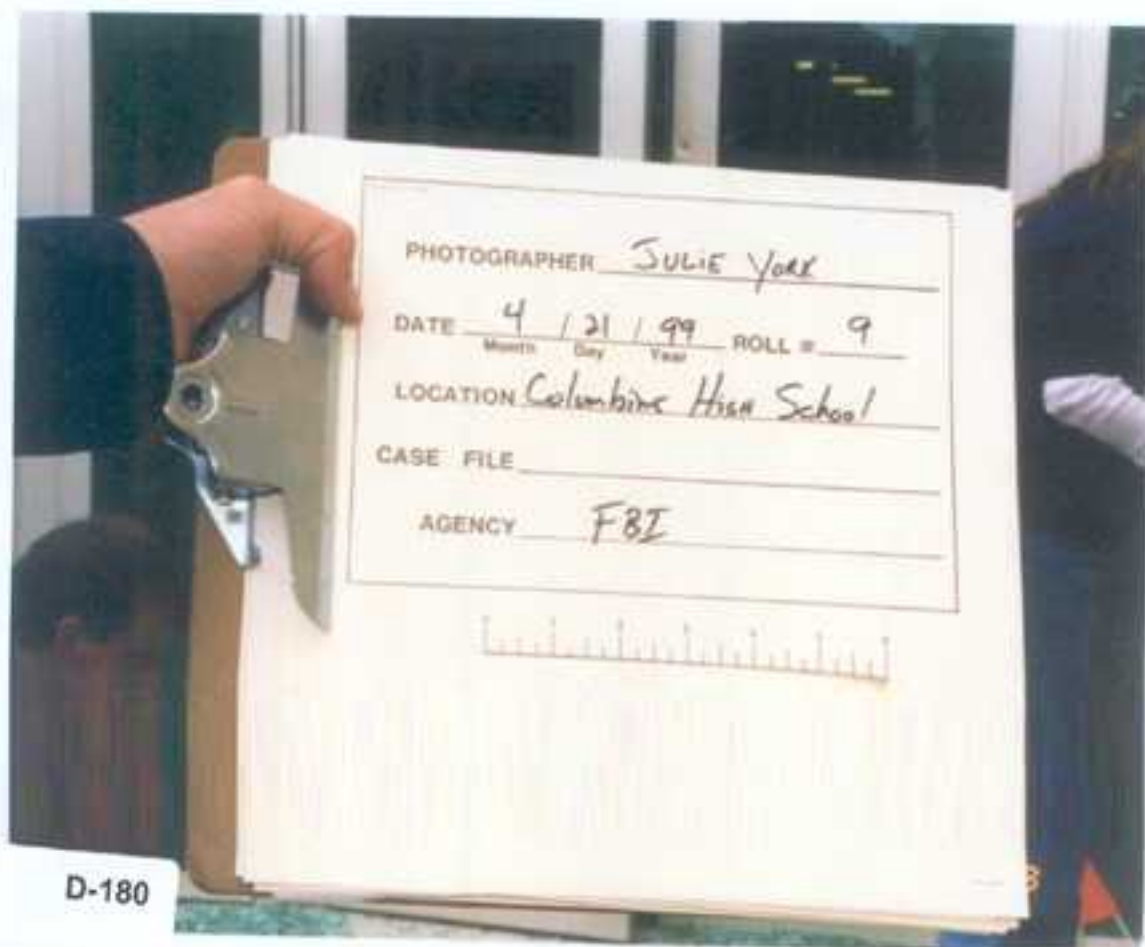 PHOTOGRAPHER JULIE YORK
DATE 4 / 21 / 99 ROLL # 9
Month Day Year
LOCATION Columbine High School
CASE FILE
AGENCY FBI
8
D-180